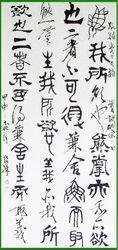 魚我所欲熊掌亦我所欲
也二者不可得兼舍魚而取
熊掌生我所欲義亦我所
欲也二者不可得兼舍生取義
甲申